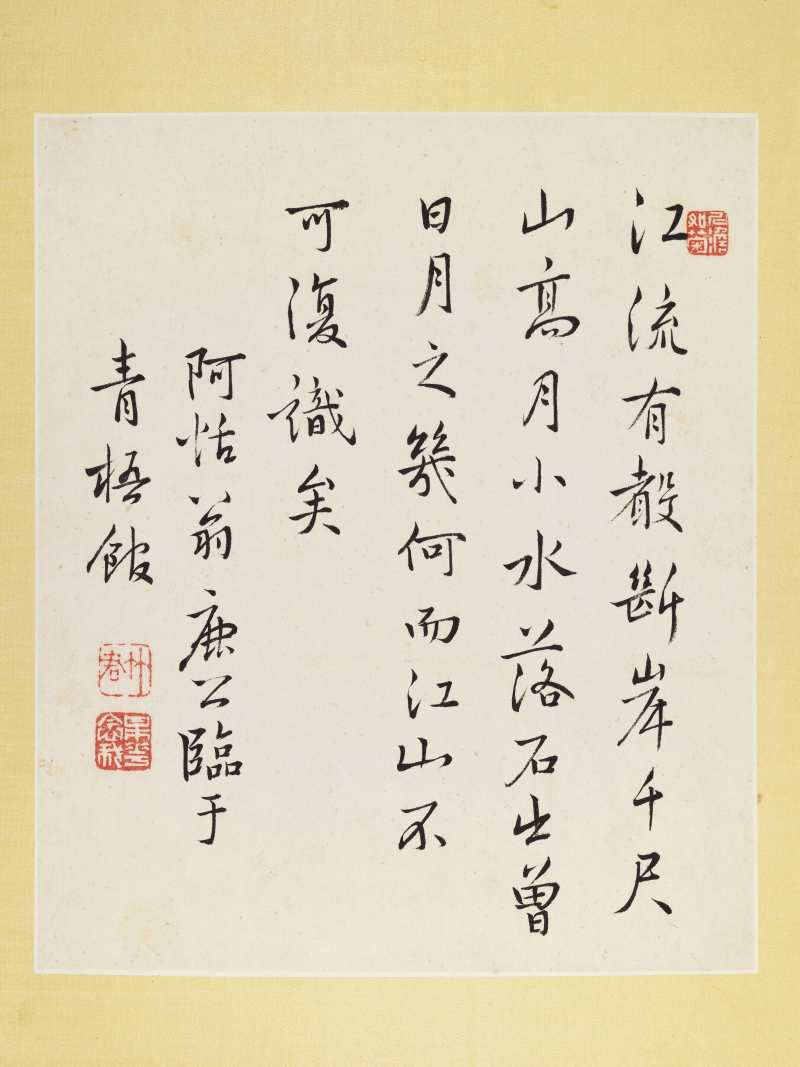 人澹如菊
江流有聲斷岸千尺
山高月小水落石出曾
日月之幾何而江山不
可復識矣
阿恬翁 臨于
青梧館